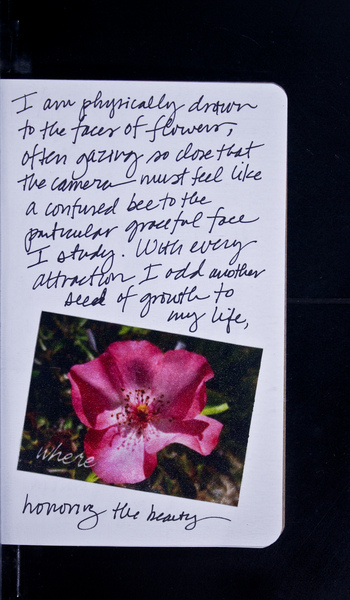 I am physically drawn
to the faces of flowers,
often gazing so close that
the camera must feel like
a confused bee to the
particular graceful face
I study. With every
attraction I add another
seed of growth to
my life,
where
honoring the beauty